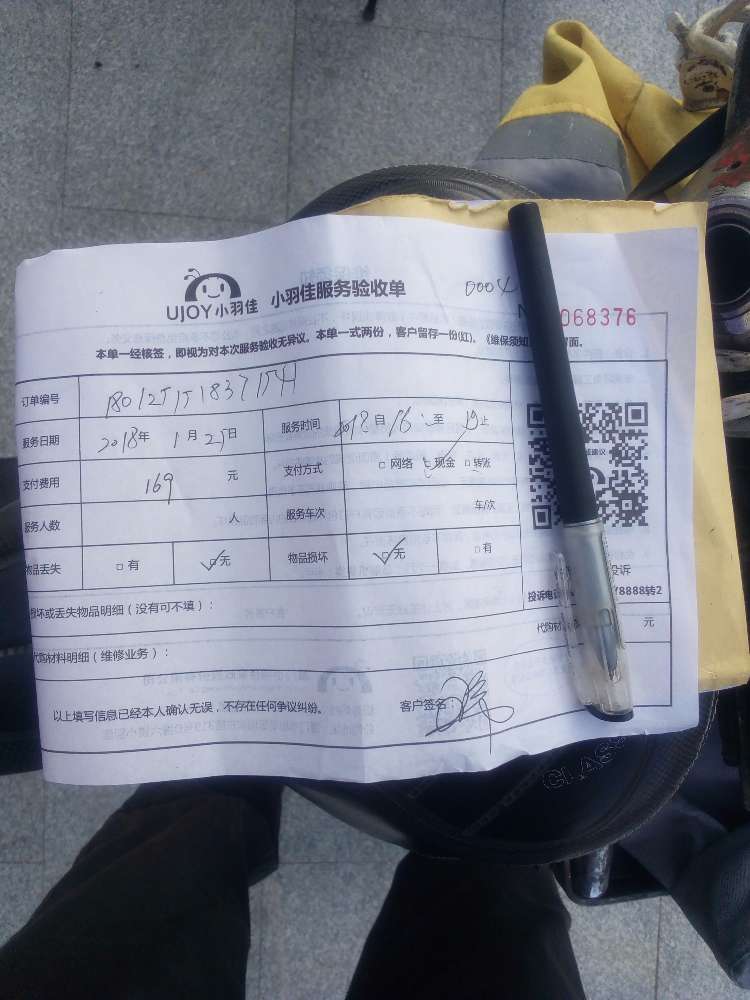 UJOY小羽佳 小羽佳服务验收单 0004
N 068376
本单一经核签，即视为对本次服务验收无异议。本单一式两份，客户留存一份(红)。《维保须知 背面。
订单编号 180125151837154
服务日期 2018年 1月25日 服务时间 2018自16:至19止
支付费用 169 元 支付方式 □网络 ☑现金 □转账
服务人数 人 服务车次 车/次
物品丢失 □有 ☑无 物品损坏 ☑无 □有
投诉
投诉电话 78888转2
损坏或丢失物品明细（没有可不填）：
代购材 元
代购材料明细（维修业务）：
以上填写信息已经本人确认无误，不存在任何争议纠纷。 客户签名：
CLAS